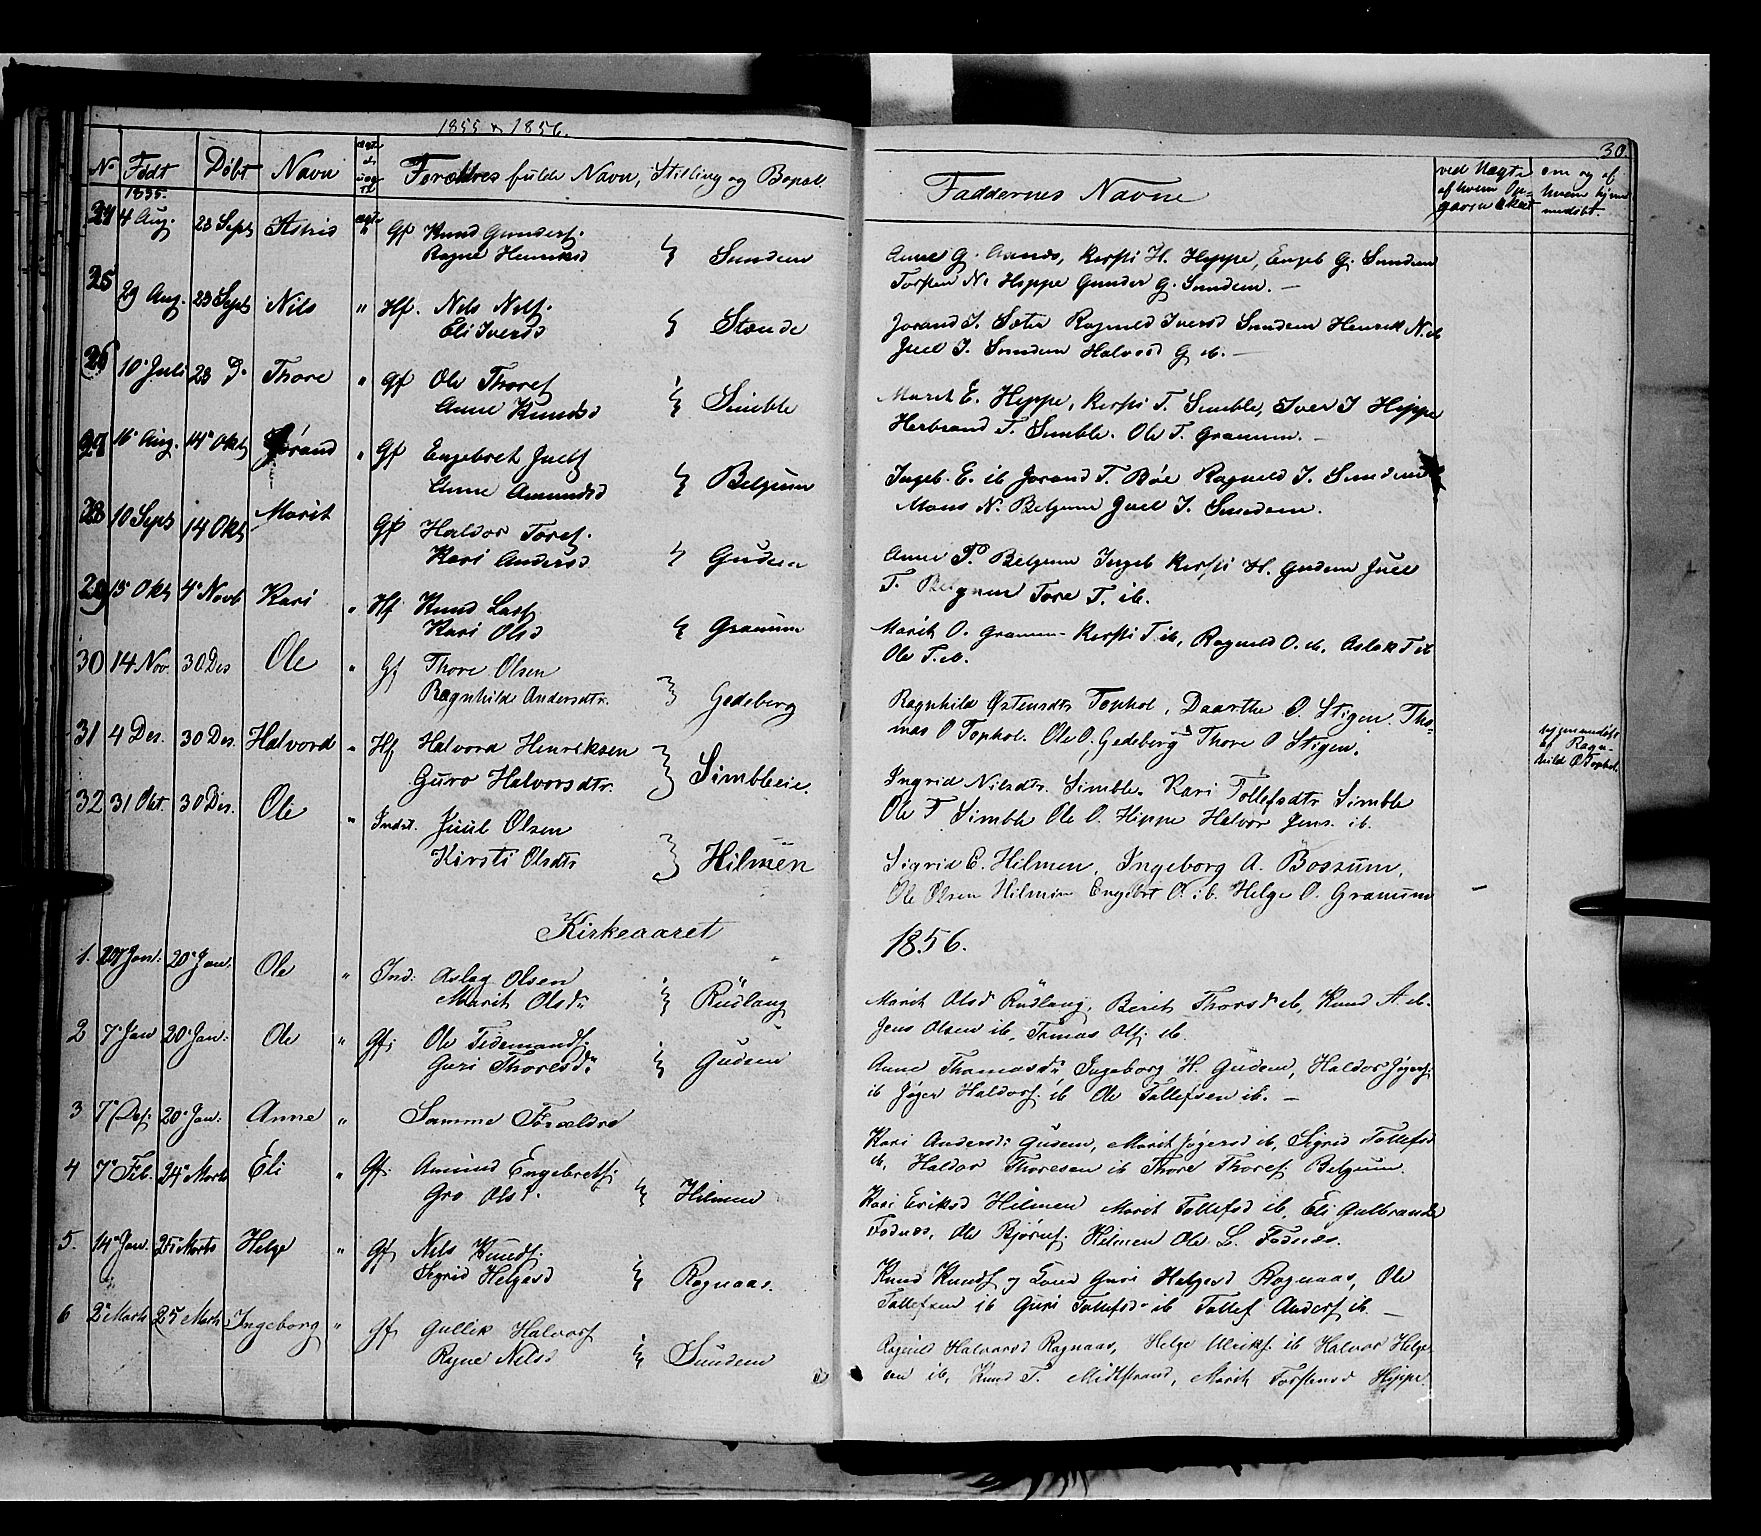 1855 & 1856.
30.
No Født Døbt Navn ægte el. uægte Forældres fulde Navn, Stilling og Bopæl.
Faddernes Navne
ved Uægte af hvem Opgaven skeet
om og af hvem hjemmedøbt.
1855.
24 4 Aug. 23 Sept Astrid ægte Gf Knud Gunders.
Ragne Henriksd Sundem
Anne G. Aanes, Kersti H. Hippe, Engeb G. Sundem
Torsten N. Hippe Gunder G. Sundem. —
25 29 Aug. 23 Sept Nils " Hf. Nils Nilss.
Eli Iversd Stende
Jorand J. Sæter Ragnild Iversd Sundem Henrik N. ib
Juel J. Sundem Halvord G ib. —
26 10 Juli 23 Do Thore " Gf Ole Thoress
Anne Knudsd Simble
Marit E. Hippe, Kersti T. Simble, Iver J Hippe
Herbrand T. Simble. Ole T. Granum. —
27 16 Aug. 14 Okt Jørand " Gf Engebret Juels
Anne Amundsd Belgum
Ingeb. E. ib Jorand T. Bøe Ragnild J. Sundem
Mons N. Belgum Juel J. Sundem.
28 10 Sept 14 Okt Marit Gf Haldor Tores.
Kari Andersd Gudem
Anne T. Belgum Ingeb Kersti H. Gudem Juel
T. Belgum Tore T. ib.
29 15 Okt 4 Novb Kari " Hf Knud Lars
Kari Olsd Granum
Marit O. Granum Kersti T. ib, Ragnild O. ib. Aslak T ib
Ole T. ib.
30 14 Nov. 30 Des Ole " Gf Thore Olsen
Ragnhilde Andersdtr. Gedeberg
Ragnhild Østensdtr Tophol, Daarthe O. Stigen. Tho-
mas O Tophol. Ole O. Gedeberg Thore O Stigen.
31 4 Des. 30 Des. Halvord " Hf Halvord Henriksen
Guro Halvorsdtr. Simbleie.
hjemmedøbt af Ragnhild O Tophol.
Ingrid Nilsdtr. Simble. Kari Tollefsdtr Simble
Ole T Simble Ole O. Hippe Halvor Jens. ib.
32 31 Okt. 30 Des. Ole " Indst. Juul Olsen
Kirsti Olsdtr Hilmen
Sigrid E. Hilmen, Ingeborg A. Bossum,
Ole Olsen Hilmen Engebrt O. ib. Helge O. Granum
Kirkeaaret 1856.
1. Jan. 20 Jan. Ole " Ind: Aslag Olsen
Marit Olsdr Rudlang
Marit Olsd Rudlang, Berit Thorsd ib, Knud A ib.
Jens Olsen ib, Tomas Ols. ib.
2 7 Jan 20 Jan. Ole " Gf. Ole Tidemands.
Guri Thoresdr. Gudem
Anne Thomasdr Ingeborg H. Gudem, Haldor Jøgers.
ib Jøger Haldors. ib Ole Tollefsen ib. —
3 7 20 Jan. Anne " Samme Forældre
Kari Andersd. Gudem, Marit Jøgersd ib, Sigrid Tollefsd
ib, Haldor Thoresen ib Thore Thores Belgum.
4 7 Feb. 24 Marts Eli " Gf. Amund Engebrets.
Gro Olsd. Hilmen
Kari Eriksd Hilmen Marit Tollefsd ib, Eli Gulbrandsd
Fodnes, Ole Bjørns. Hilmen Ole L. Fodnes.
5. 14 Jan. 25 Marts Helge " Gf Nils Knuds.
Sigrid Helgesd Rognaas.
Knud Knuds og Guri Helgesd Rognaas, Ole
Tollefsen ib Guri Tollefsd ib Tollef Anders ib. —
6 2 Marts 25 Marts Ingeborg " Gf. Gullik Halvors
Ragne Nilsd Sundem
Ragnild Halvorsd Rognaas, Helge Ulriks. ib Halvor Helge-
sen ib, Knud T. Midtstrand, Marit Torstensd Hippe.